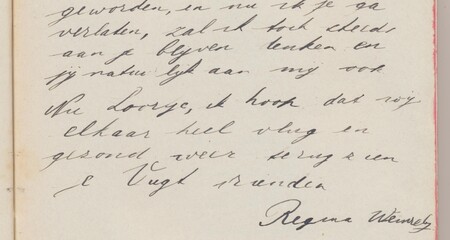 geworden, en nu ik je ga
verlaten, zal ik toch steeds
aan je blijven denken en
jij natuurlijk aan mij ook
Nu Loorje, ik hoop dat wij
elkaar heel vlug en
gezond weer terug zien
Vugt vrienden
Regina